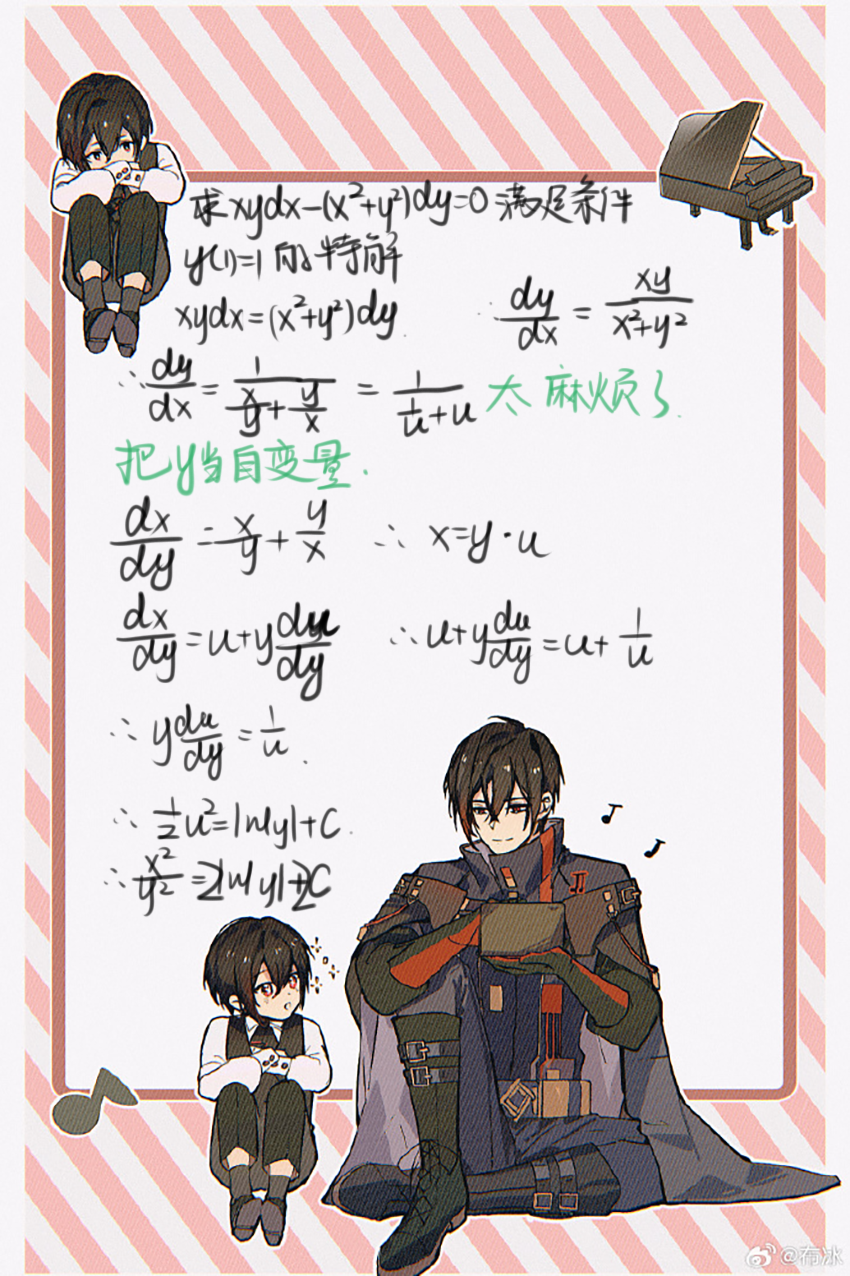 求xydx-(x²+y²)dy=0 满足条件
y(1)=1 的特解
xydx=(x²+y²)dy. ∴ dy/dx = xy/(x²+y²)
∴ dy/dx = 1/(x/y + y/x) = 1/(1/u + u) 太麻烦了.
把y当自变量.
dx/dy = x/y + y/x ∴ x=y·u
dx/dy = u+y du/dy ∴ u+y du/dy = u+ 1/u
∴ y du/dy = 1/u.
∴ 1/2 u² = ln|y|+C.
∴ x²/y² = 2ln|y|+2C
@布冰